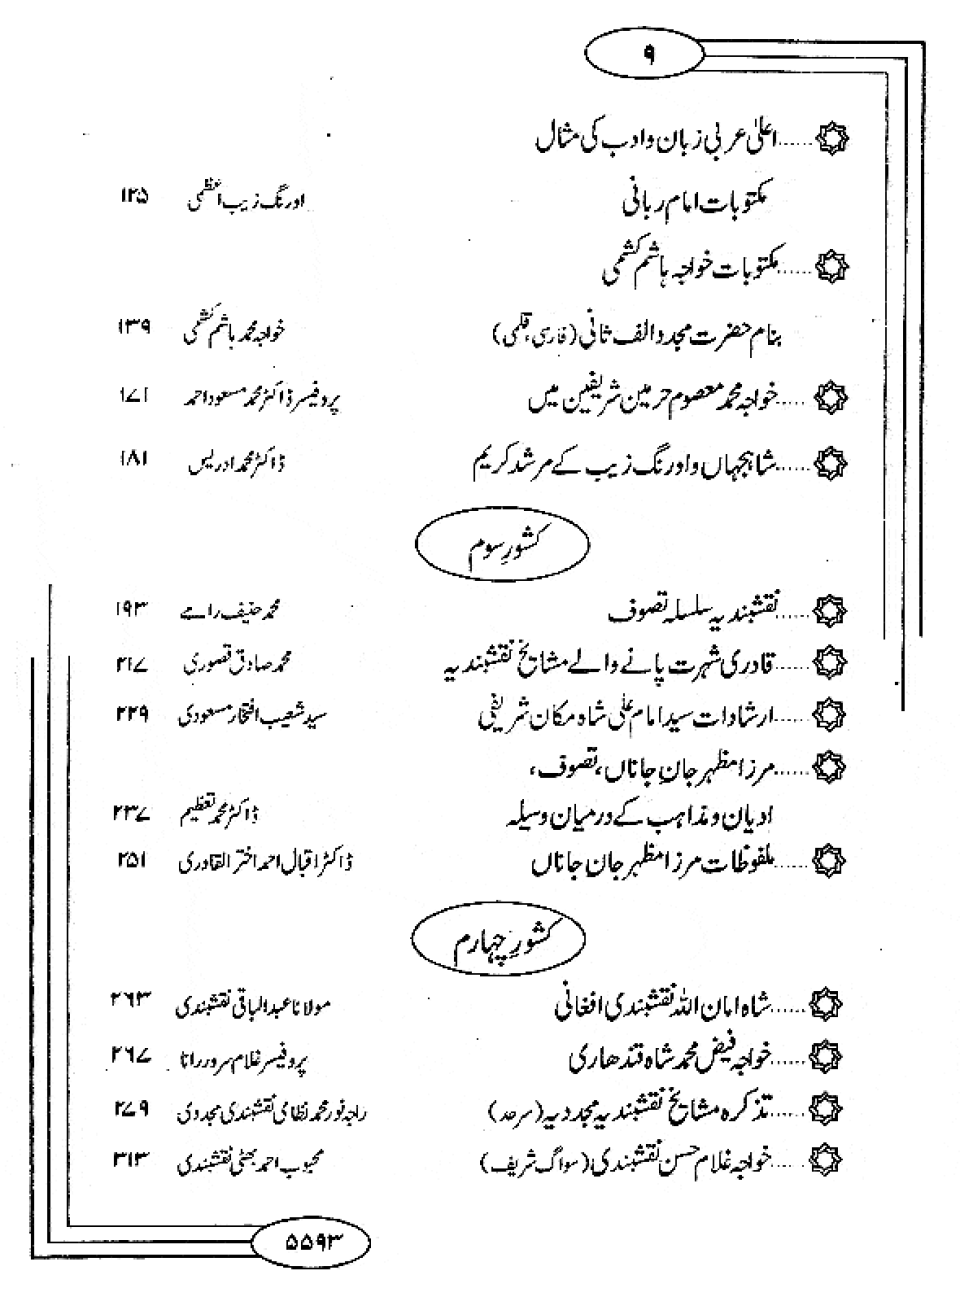 ۹
اعلیٰ عربی زبان و ادب کی مثال
مکتوبات امام ربانی اورنگ زیب اعظمی ۱۲۵
مکتوبات خواجہ ہاشم کشمی
بنام حضرت مجدد الف ثانی (فارسی، قلمی) خواجہ محمد ہاشم کشمی ۱۳۹
خواجہ محمد معصوم حرمین شریفین میں پروفیسر ڈاکٹر محمد مسعود احمد ۱۷۱
شاہجہاں و اورنگ زیب کے مرشد کریم ڈاکٹر محمد ادریس ۱۸۱
کشورِ سوم
نقشبندیہ سلسلہ تصوف محمد حنیف رامے ۱۹۳
قادری شہرت پانے والے مشایخ نقشبندیہ محمد صادق قصوری ۲۱۷
ارشادات سید امام علی شاہ مکان شریفی سید شعیب افتخار مسعودی ۲۲۹
مرزا مظہر جانِ جاناں، تصوف،
ادیان و مذاہب کے درمیان وسیلہ ڈاکٹر محمد تعظیم ۲۳۷
ملفوظات مرزا مظہر جان جاناں ڈاکٹر اقبال احمد اختر القادری ۲۵۱
کشورِ چہارم
شاہ امان اللہ نقشبندی افغانی مولانا عبدالباقی نقشبندی ۲۶۳
خواجہ فیض محمد شاہ قندھاری پروفیسر غلام سرور رانا ۲۶۷
تذکرہ مشایخ نقشبندیہ مجددیہ (سرحد) راجہ نور محمد نظامی نقشبندی مجددی ۲۷۹
خواجہ غلام حسن نقشبندی (سواگ شریف) محبوب احمد بھٹی نقشبندی ۳۱۳
۵۵۹۳